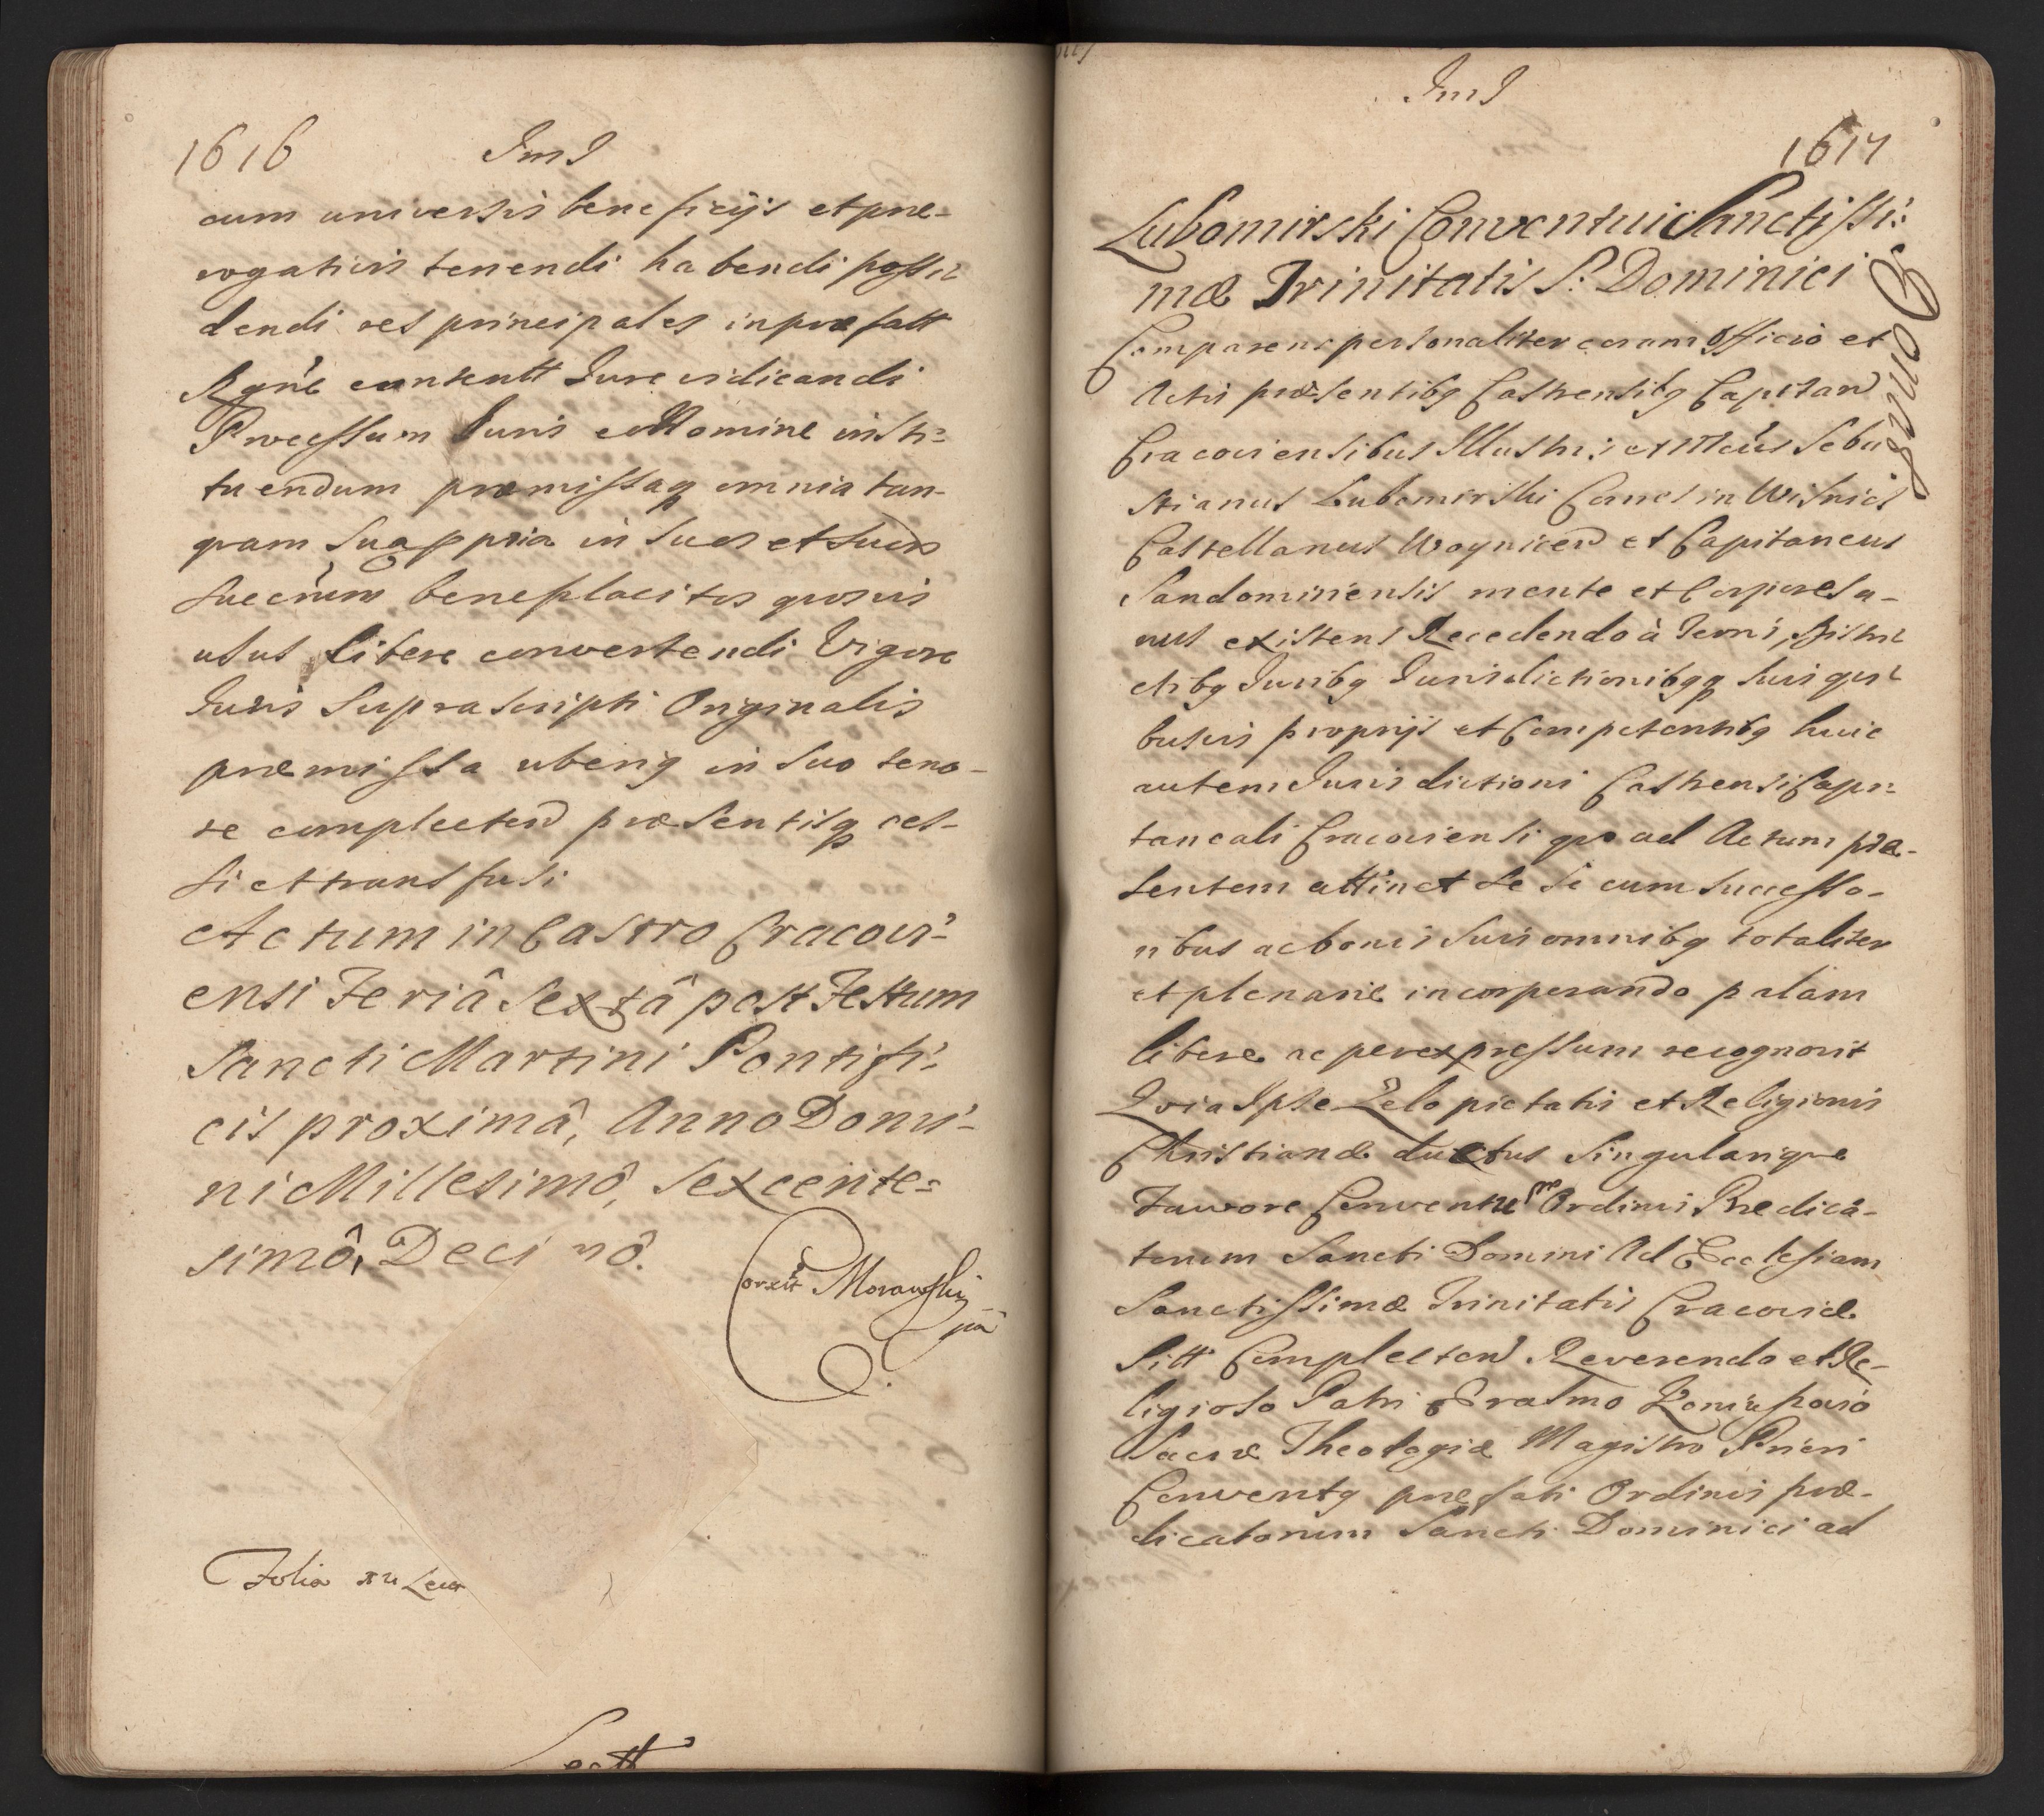 1616 JmJ
cum universis beneficijs et præ-
rogativis tenendi habendi possi-
dendi res principales in præfatt
Rgne contentt Jure vidicandi
Processum Juris eo Nomine insti-
tuendum præmissaq omnia tan-
quam sua ppria in suos et suors
succrum beneplacitos quosvis
usus libere convertendi Vigore
Juris Suprascripti Originalis
præmissa uberiq in suo teno-
re complecten præsentisq ces-
si et transfusi
Actum in Castro Cracovi-
ensi Feriâ Sextâ post Festum
Sancti Martini Pontifi-
cis proximâ, Anno Domi-
ni Millesimô, Sexcente-
simô, Decimô.
Corxit Morawski
pa
Folia
Lectt
JmJ
1617
Lubomirski Conventui Sanctissi:
mæ Trinitatis S. Dominici
Comparens personaliter coram Officio et
Actis præsentibq Castrensibq Capitan
Cracoviensibus Illustris et Mcus Seba
stianus Lubomirski Comes in Wisnicz
Castellanus Woynicen et Capitaneus
Sandomiriensis mente et Corpore sa-
nus existens Recedendo à Terris, Distri
ctibq Juribq Jurisdictionibqq suis qui
busvis proprijs et Competentibq huic
autem Jurisdictioni Castrensi Capi-
taneali Cracoviensi quo ad Actum præ-
sentem attinet se se cum successo-
ribus ac bonis suis omnibq totaliter
et plenarie incorporando palam
libere ac per expressum recognovit
Quia Ipse Zelo pietatis et Religionis
Christianæ ductus Singularique
Favore Ordinis Predica-
torum Sancti Domini Ad Ecclesiam
Sanctissimæ Trinitatis Cracoviæ
Sitt Complecten Reverendo et Re-
ligioso Patri Erasmo
Sacræ Theologiæ Magistro Priori
Conventq præfati Ordinis præ-
dicatorum Sancti Dominici ad